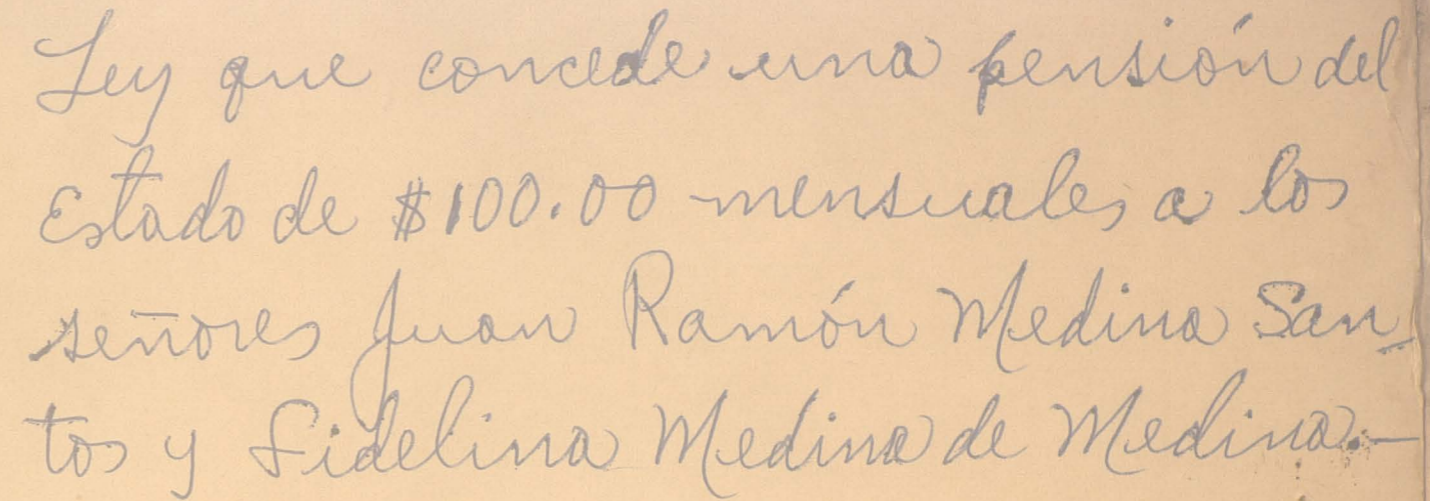 Ley que concede una pensión del
Estado de $100.00 mensuales a los
señores Juan Ramón Medina San-
tos y Fidelina Medina de Medina.-